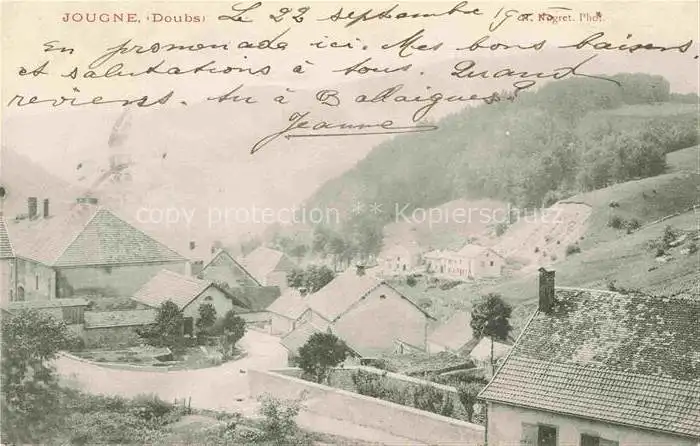 JOUGNE, (Doubs) Le 22 septembre 190
Nogret. Phot.
En promenade ici. Mes bons baisers
et salutations à tous. Quand
reviens-tu à Ballaigues?
Jeanne
copy protection * Kopierschutz